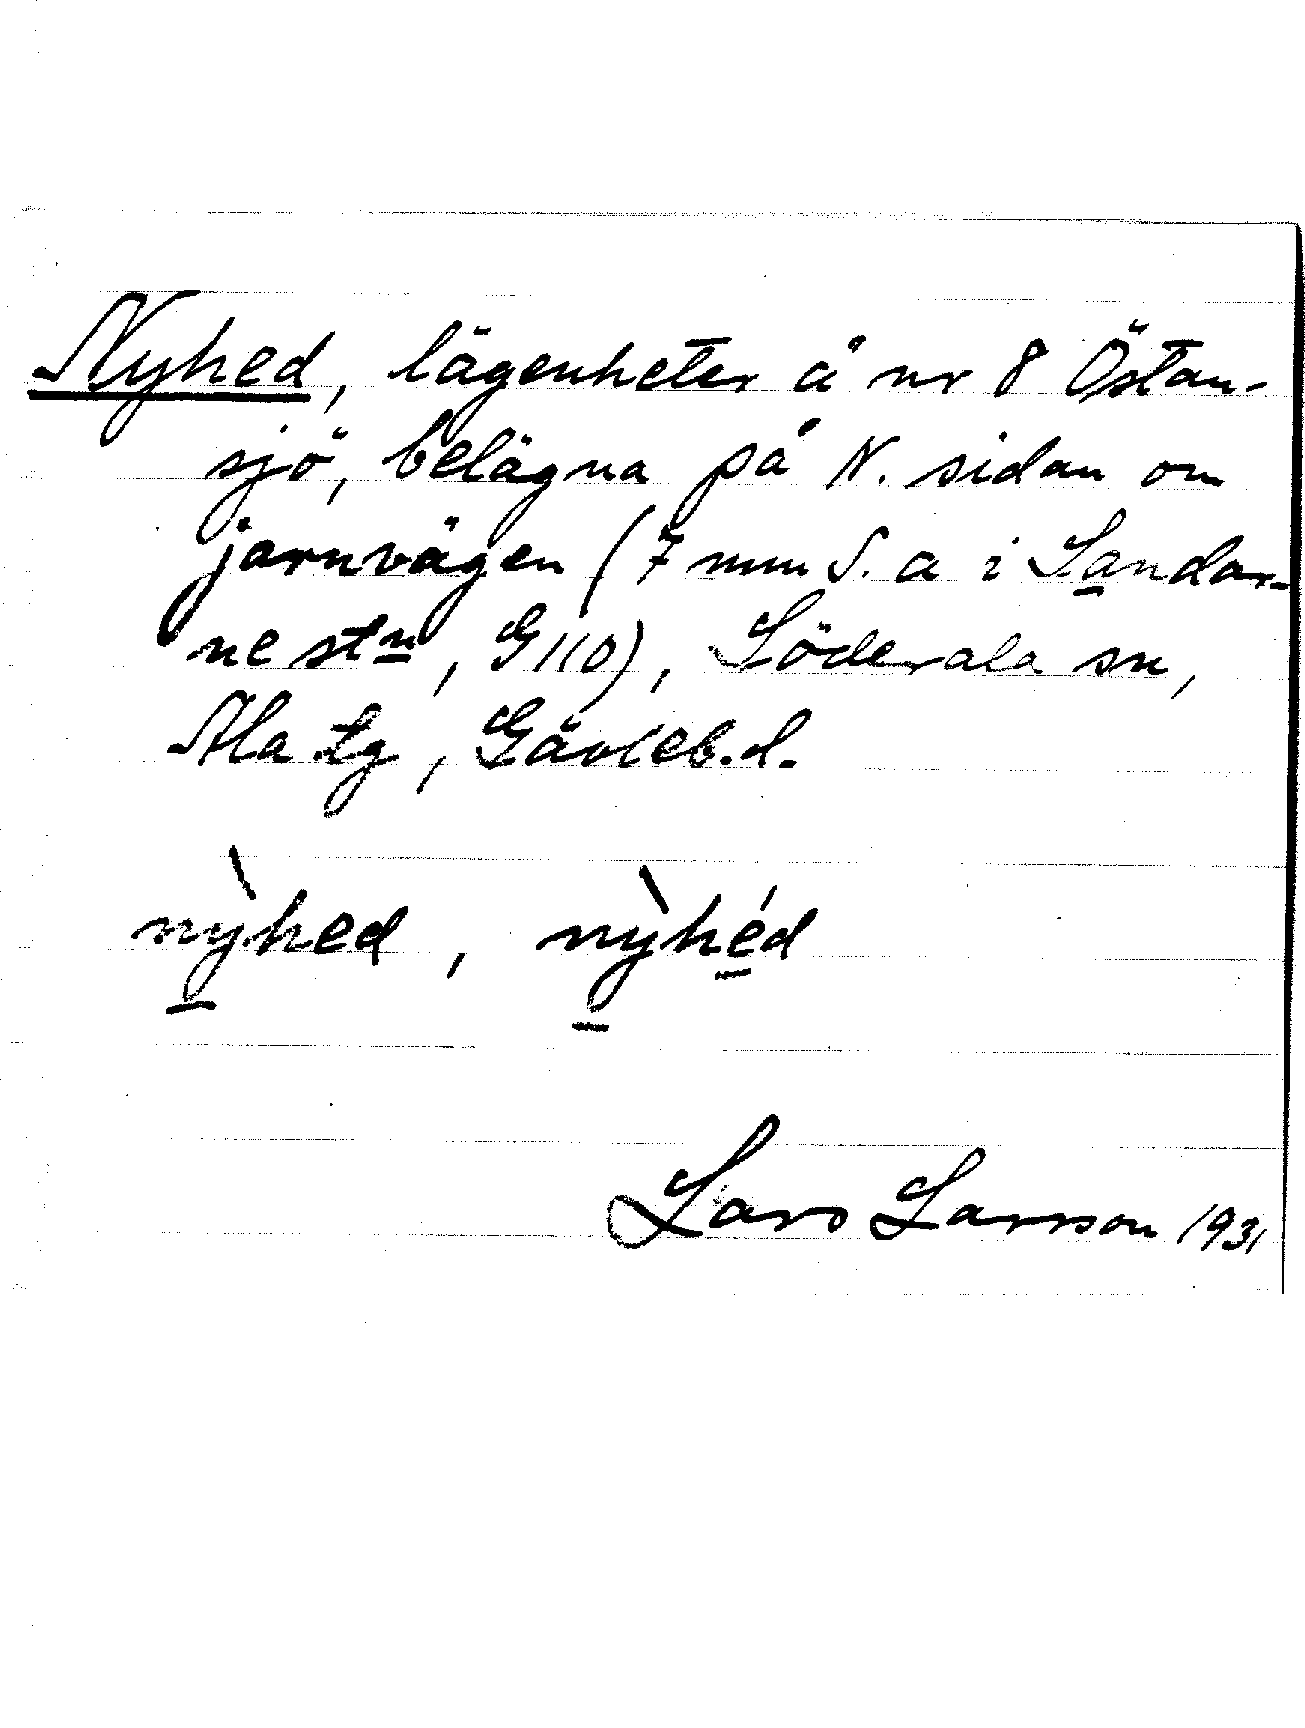 Nyhed, lägenheter å nr 8 Östan-
sjö, belägna på N. sidan om
jarnvägen (7 mm S. a i Sandar-
ne stn, G 110), Söderala sn,
Ala tg, Gävleb.l.
nỳhed, nỳhéd
Lars Larsson 1931